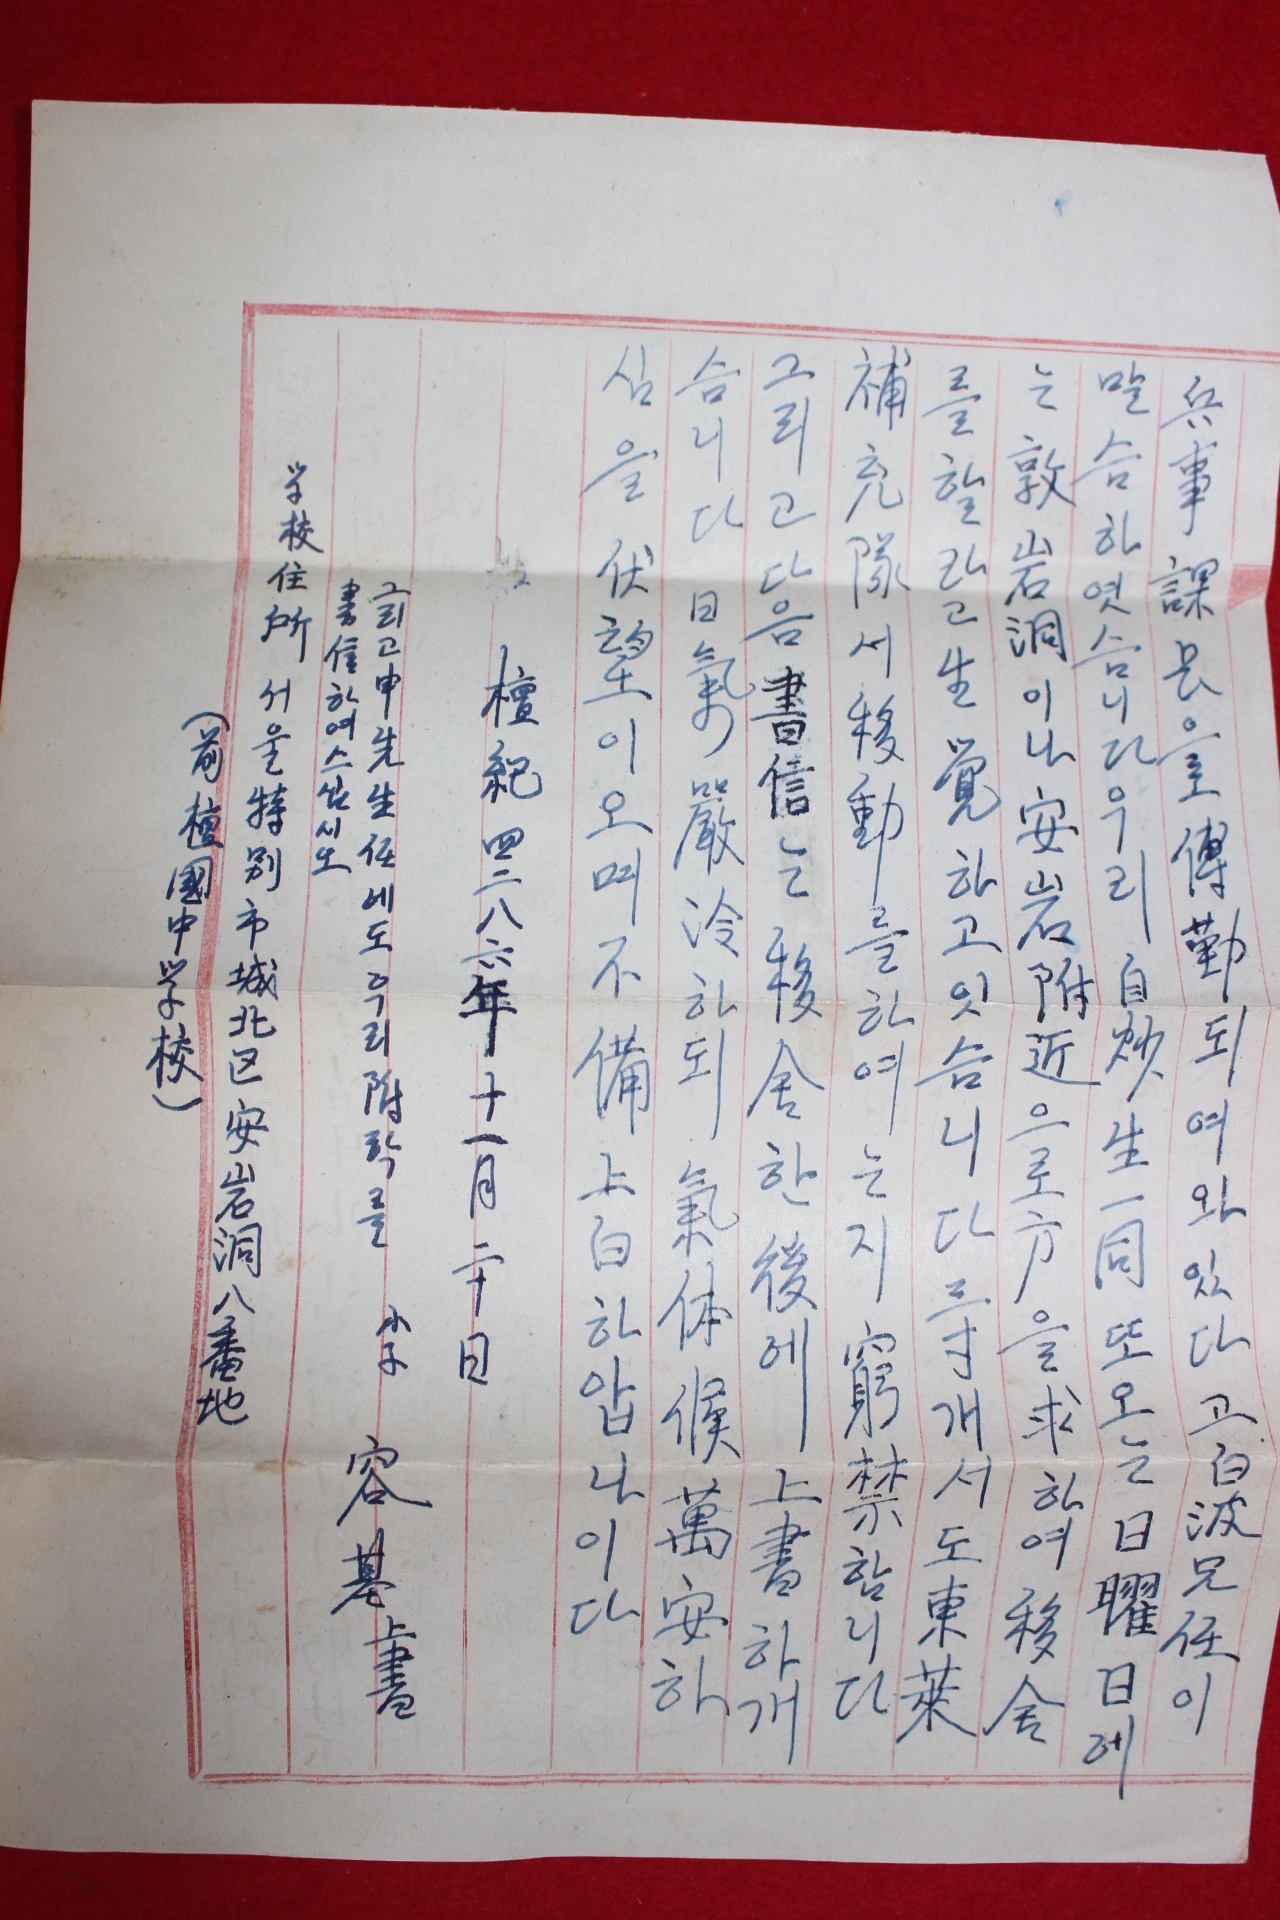 兵事課長을 傳勤되여와 있다고 白波兄任이
말슴하엿슴니다 우리 自炊生一同 또 오는 日曜日에
는 敦岩洞이나 安岩附近으로 方을 求하여 移舍
를 할라고 生覺하고 잇슴니다 三寸개서도 東萊
補充隊서 移動를 하여는지 窮禁함니다
그리고 다음 書信는 移舍한 後에 上書하개
슴니다 日氣嚴冷하되 氣体候萬安하
심을 伏望이오며 不備上白하압나이다
檀紀 四二八六年 十一月 二十日
그리고 申先生任에도 우리 附학를
書信하여 스십시오
小子 容基 上書
学校住所 서울特別市城北区安岩洞八番地
(前檀國中学校)